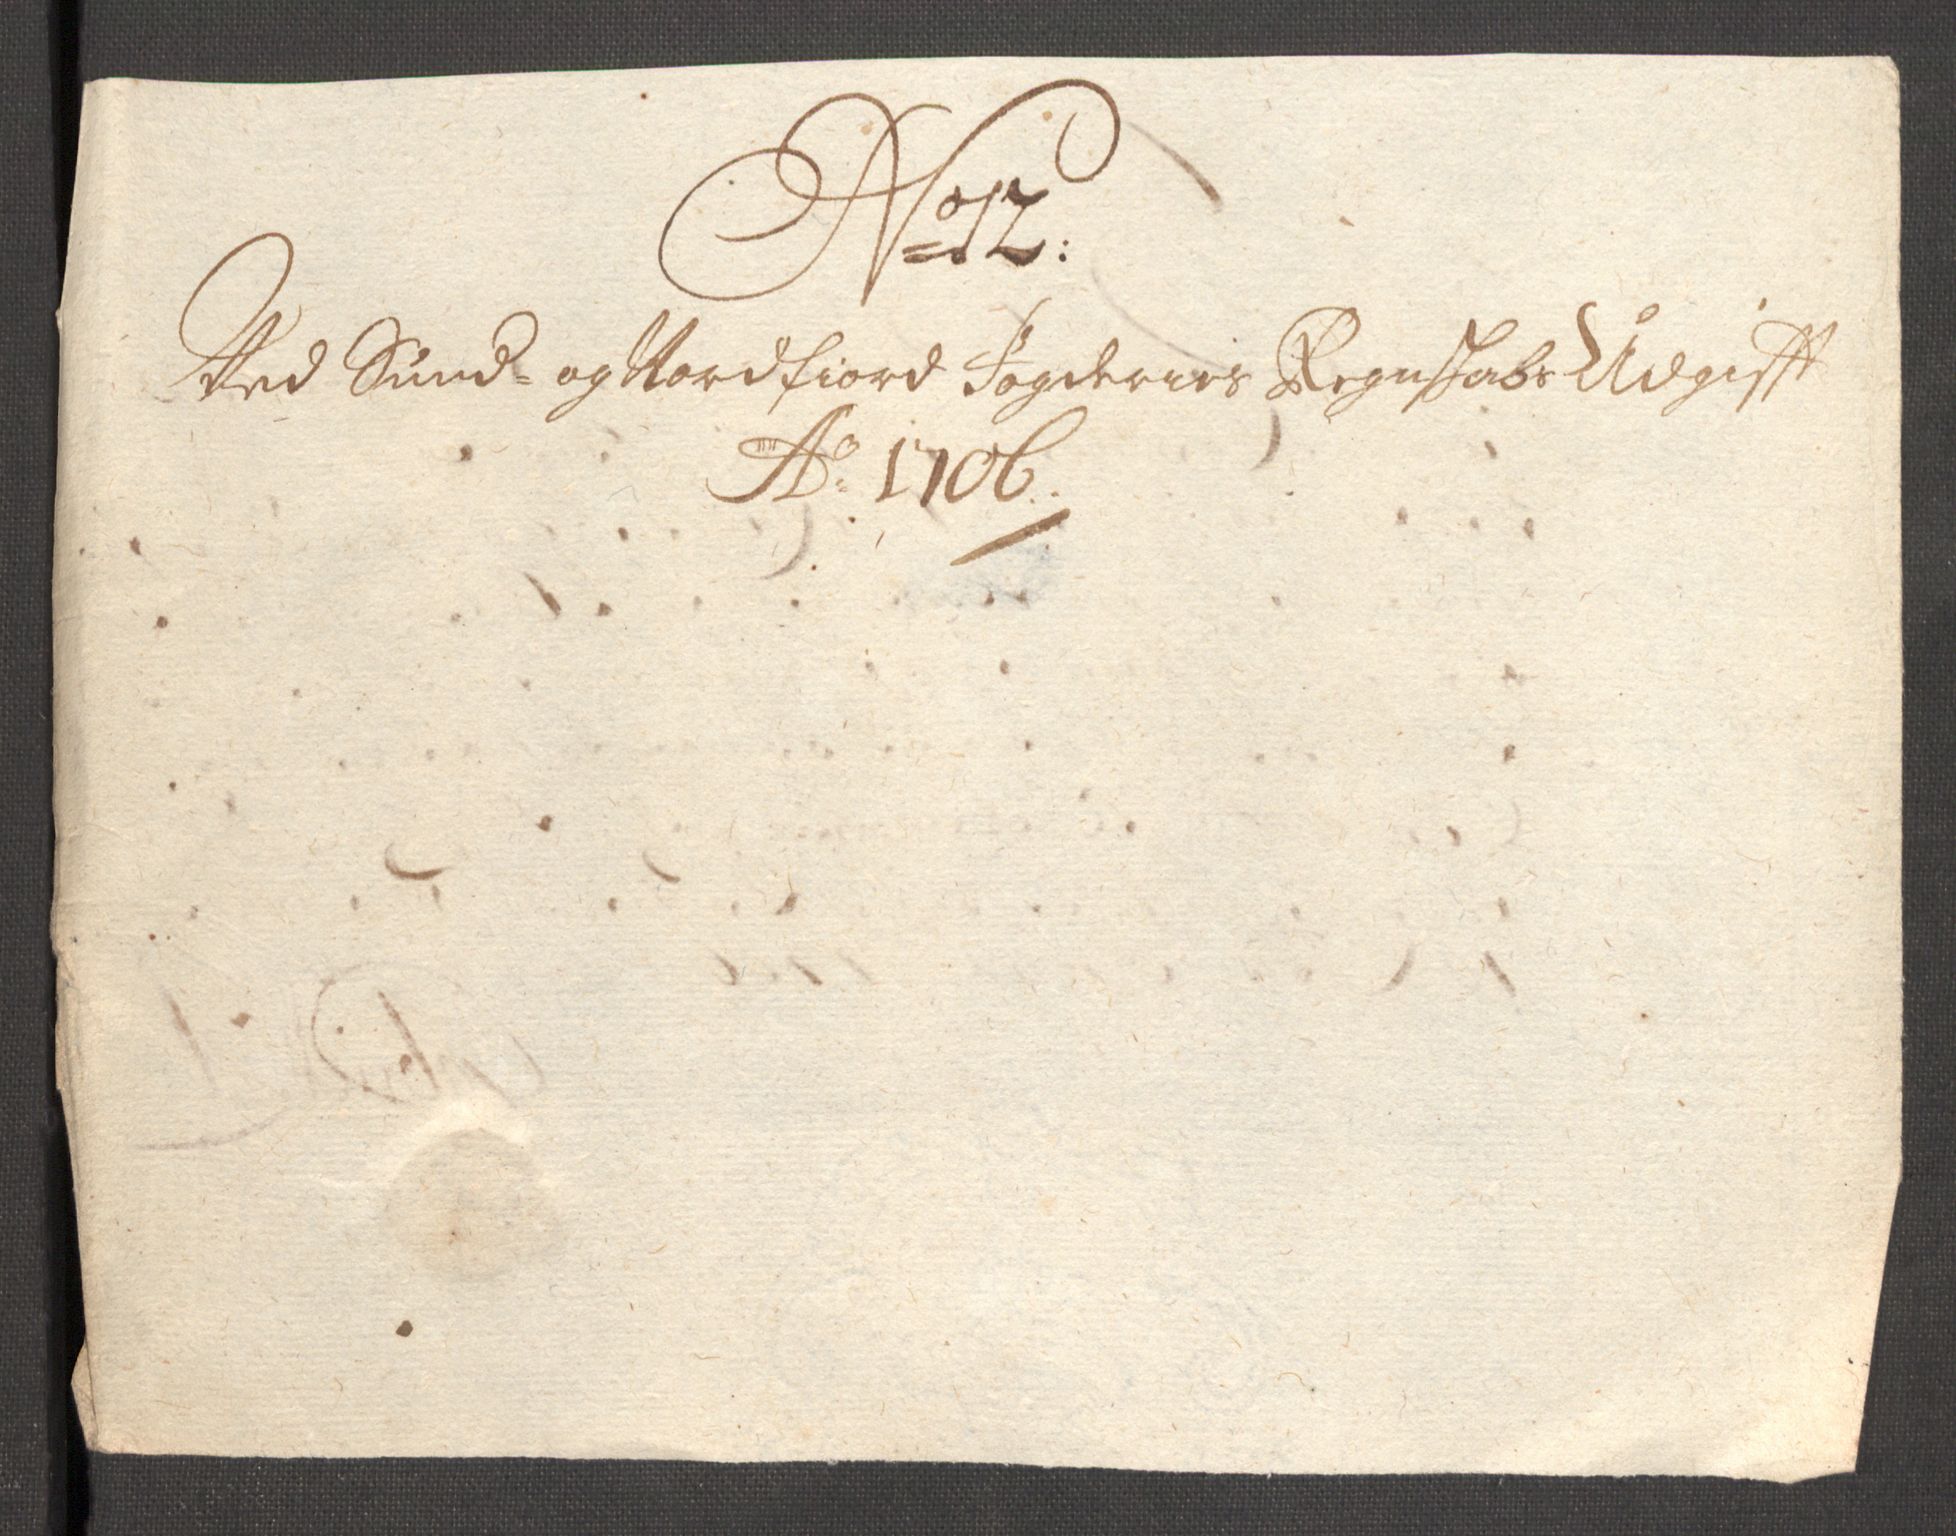 No 12:
Ved Sund- og Nordfiord Fogderies Regnskabs Udgifft
Ao: 1706.